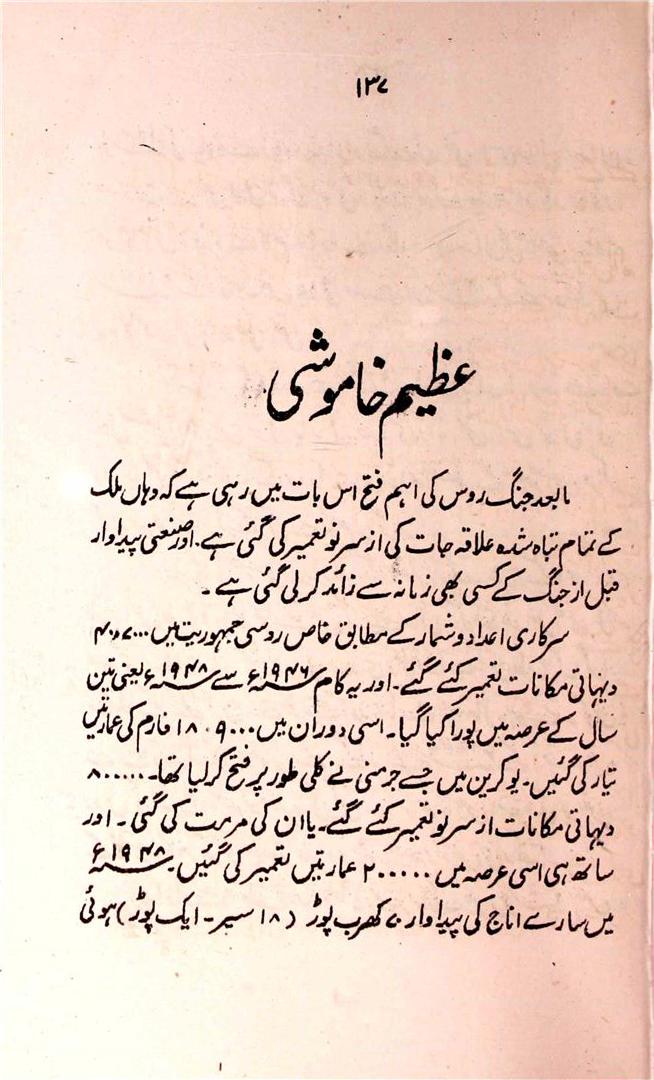 ۱۳۷
عظیم خاموشی
مابعد جنگ روس کی اہم فتح اس بات میں رہی ہے کہ وہاں ملک
کے تمام تباہ شدہ علاقہ جات کی از سر نو تعمیر کی گئی ہے۔ اور صنعتی پیداوار
قبل از جنگ کے کسی بھی زمانہ سے زائد کر لی گئی ہے۔
سرکاری اعداد و شمار کے مطابق خاص روسی جمہوریت میں
دیہاتی مکانات تعمیر کئے گئے۔ اور یہ کام ۱۹۴۶ء سے ۱۹۴۸ء یعنی تین
سال کے عرصہ میں پورا کیا گیا۔ اسی دوران میں ۱۸۰۹۰۰۰ فارم کی عمارتیں
تیار کی گئیں۔ یوکرین میں جسے جرمنی نے کلی طور پر فتح کر لیا تھا۔ ۸۰۰۰۰۰
دیہاتی مکانات از سر نو تعمیر کئے گئے۔ یا ان کی مرمت کی گئی۔ اور
ساتھ ہی اسی عرصہ میں ۲۰۰۰۰۰ عمارتیں تعمیر کی گئیں۔ ۱۹۴۸ء
میں سارے اناج کی پیداوار ۷ کھرب پوڑ (۱۸ سیر - ایک پوڑ) ہوئی